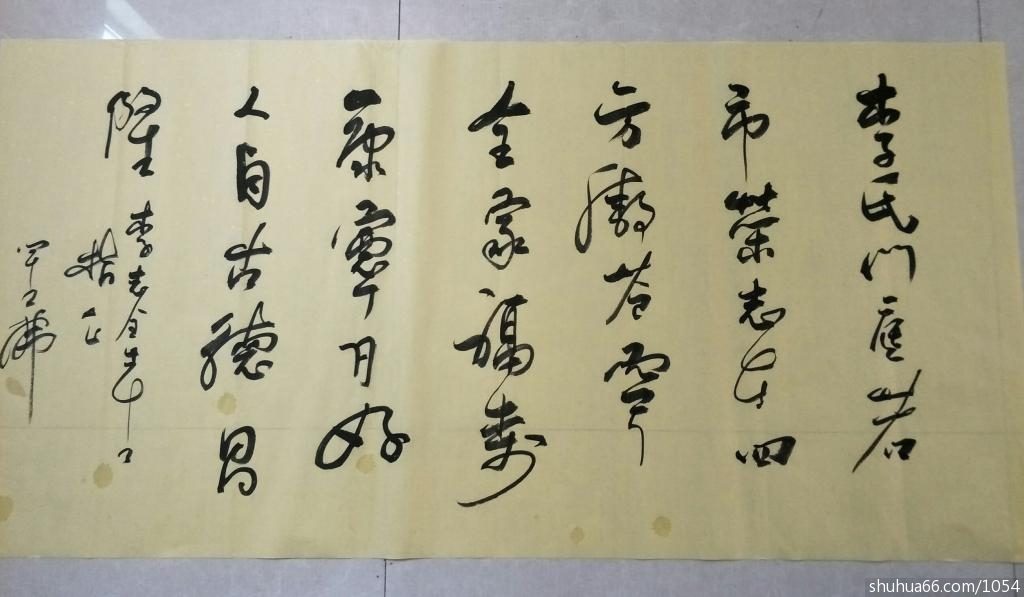 李氏門庭若
市榮志在四
方勝蒼穹
全家福壽
康寧月好
人自古德昌
隆 李志全
指正
shuhua66.com/1054